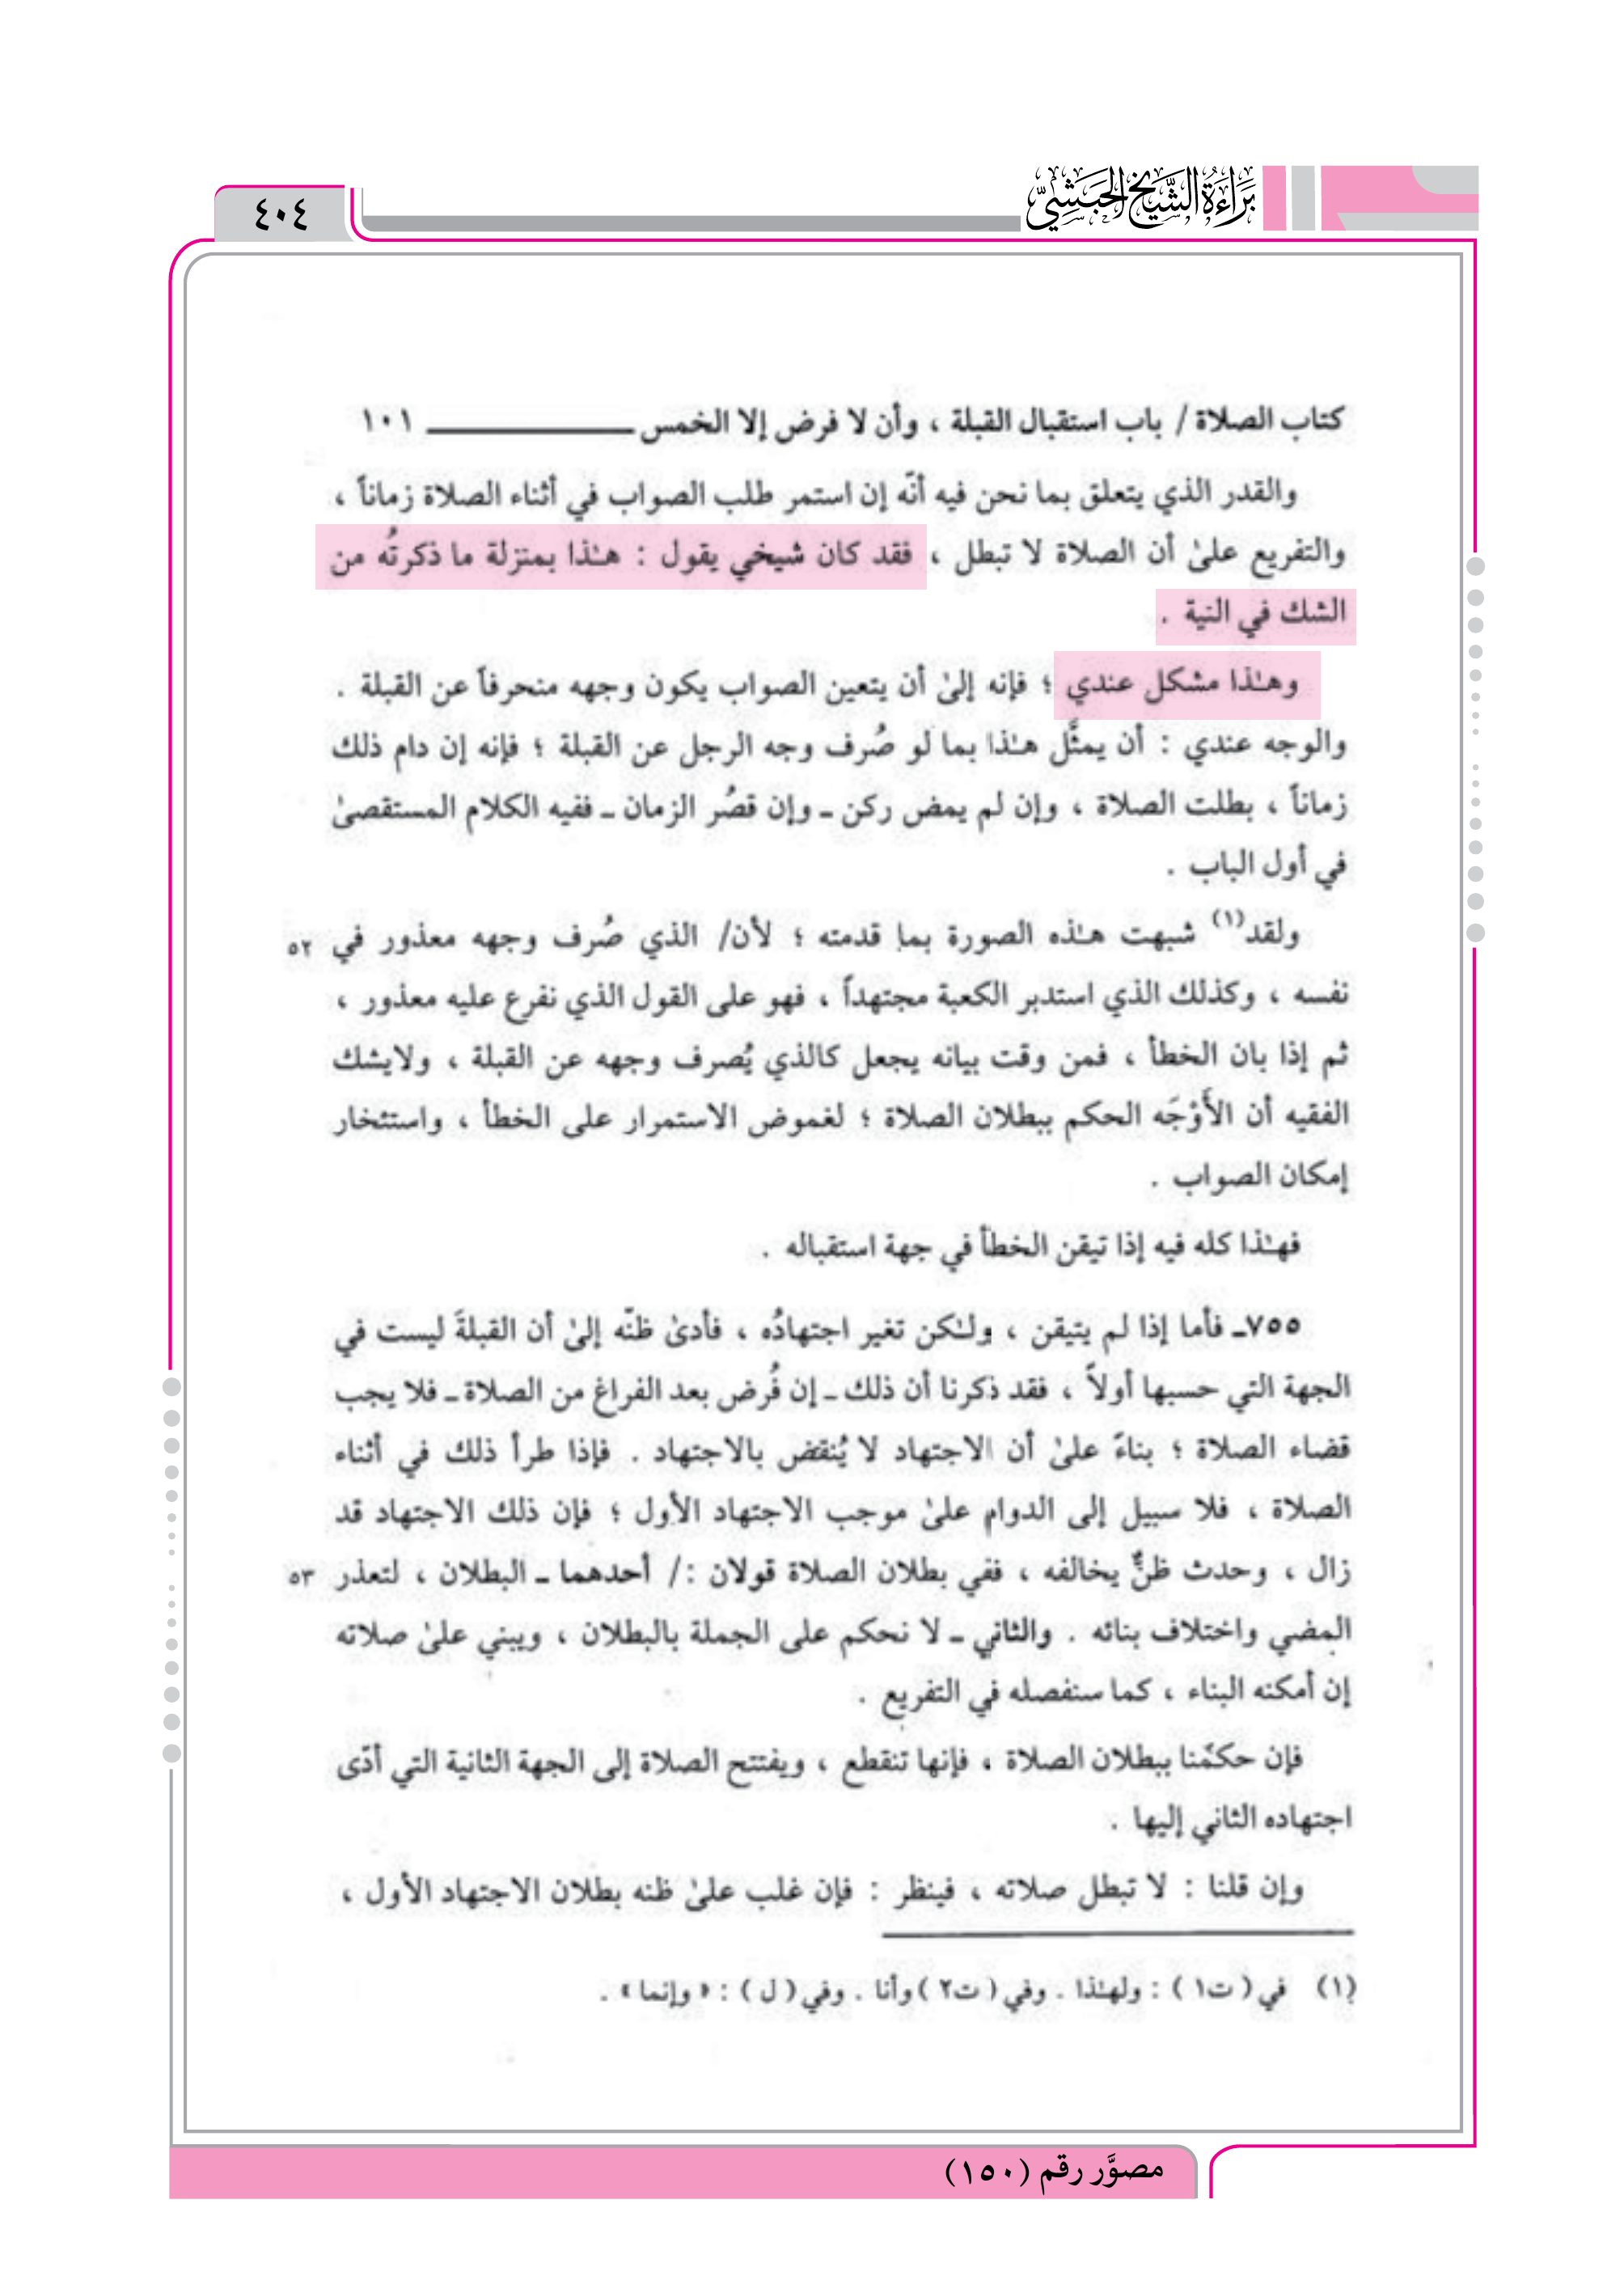 بَرَاءَةُ الشَّيْخِ الحَبَشِيّ
٤٠٤
كتاب الصلاة / باب استقبال القبلة ، وأن لا فرض إلا الخمس ــــــــــــ ١٠١
والقدر الذي يتعلق بما نحن فيه أنّه إن استمر طلب الصواب في أثناء الصلاة زماناً ،
والتفريع علىٰ أن الصلاة لا تبطل ، فقد كان شيخي يقول : هـٰذا بمنزلة ما ذكرتُه من
الشك في النية .
وهـٰذا مشكل عندي ؛ فإنه إلىٰ أن يتعين الصواب يكون وجهه منحرفاً عن القبلة .
والوجه عندي : أن يمثَّل هـٰذا بما لو صُرف وجه الرجل عن القبلة ؛ فإنه إن دام ذلك
زماناً ، بطلت الصلاة ، وإن لم يمض ركن ـ وإن قصُر الزمان ـ ففيه الكلام المستقصىٰ
في أول الباب .
ولقد(١) شبهت هـٰذه الصورة بما قدمته ؛ لأن/ الذي صُرف وجهه معذور في ٥٢
نفسه ، وكذلك الذي استدبر الكعبة مجتهداً ، فهو على القول الذي نفرع عليه معذور ،
ثم إذا بان الخطأ ، فمن وقت بيانه يجعل كالذي يُصرف وجهه عن القبلة ، ولايشك
الفقيه أن الأَوْجَه الحكم ببطلان الصلاة ؛ لغموض الاستمرار على الخطأ ، واستئخار
إمكان الصواب .
فهـٰذا كله فيه إذا تيقن الخطأ في جهة استقباله .
٧٥٥ـ فأما إذا لم يتيقن ، ولـٰكن تغير اجتهادُه ، فأدىٰ ظنّه إلىٰ أن القبلةَ ليست في
الجهة التي حسبها أولاً ، فقد ذكرنا أن ذلك ـ إن فُرض بعد الفراغ من الصلاة ـ فلا يجب
قضاء الصلاة ؛ بناءً علىٰ أن الاجتهاد لا يُنقض بالاجتهاد . فإذا طرأ ذلك في أثناء
الصلاة ، فلا سبيل إلى الدوام علىٰ موجب الاجتهاد الأول ؛ فإن ذلك الاجتهاد قد
زال ، وحدث ظنٌّ يخالفه ، ففي بطلان الصلاة قولان :/ أحدهما ـ البطلان ، لتعذر ٥٣
المضي واختلاف بنائه . والثاني ـ لا نحكم على الجملة بالبطلان ، ويبني علىٰ صلاته
إن أمكنه البناء ، كما سنفصله في التفريع .
فإن حكمْنا ببطلان الصلاة ، فإنها تنقطع ، ويفتتح الصلاة إلى الجهة الثانية التي أدّى
اجتهاده الثاني إليها .
وإن قلنا : لا تبطل صلاته ، فينظر : فإن غلب علىٰ ظنه بطلان الاجتهاد الأول ،
(١) في ( ت١ ) : ولهـٰذا . وفي ( ت٢ ) وأنا . وفي ( ل ) : « وإنما » .
مصوَّر رقم (١٥٠)